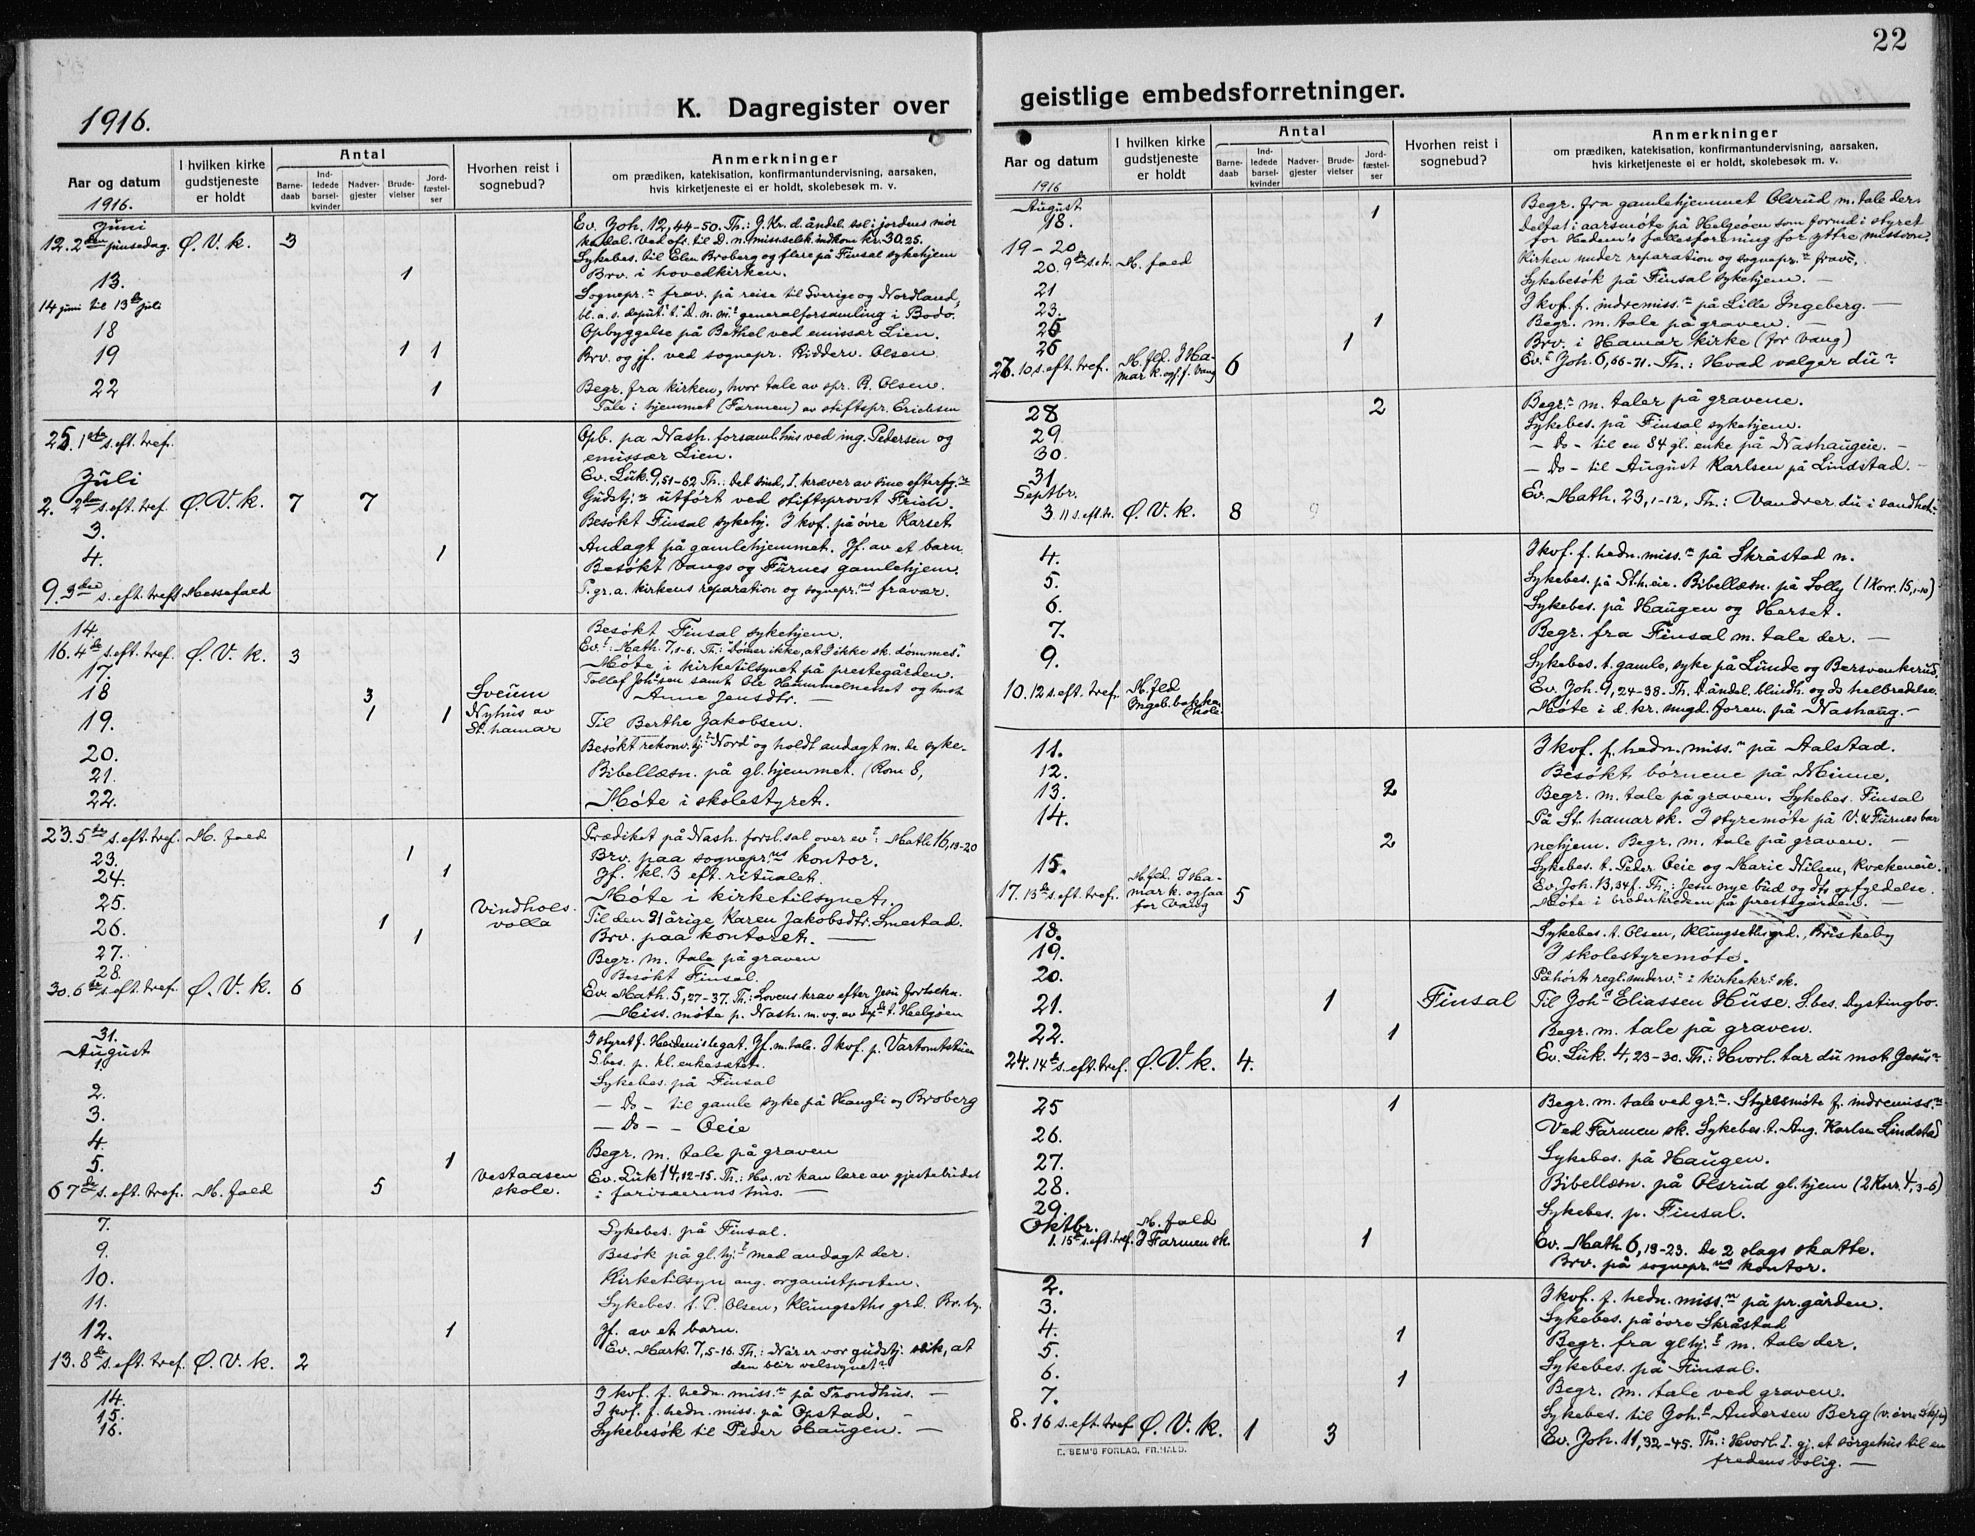 22
1916.
K. Dagregister over
geistlige embedsforretninger.
Aar og datum
I hvilken kirke gudstjeneste er holdt
Antal
Barnedaab
Indledede barselkvinder
Nadvergjester
Brudevielser
Jordfæstelser
Hvorhen reist i sognebud?
Anmerkninger
om prædiken, katekisation, konfirmantundervisning, aarsaken, hvis kirketjeneste ei er holdt, skolebesøk m. v.
1916.
Juni
Ev. Joh. 12,44-50. Th.: J. Kr. d. åndel. sol i jordens mør
12. 2den pinsedag. Ø. V. k. 3 kedal. Ved ofr. til D. n. miss.selsk. indkom kr. 30.25.
Sykebes. til Elen Broberg og flere på Finsal sykehjem
13. 1 Brv. i hovedkirken.
14 juni til 13de juli Sognepr.n frav. på reise til Sverige og Nordland,
bl. a. s. deput.t t. D. n. m.s generalforsamling i Bodø.
18 Opbyggelse på Bethel ved emissær Lien.
19 1 1 Brv. og jf. ved sognepr. Ridderv. Olsen
22 1 Begr. fra kirken, hvor tale av spr. R. Olsen.
Tale i hjemmet (Farmen) av stiftspr. Erichsen
25. 1ste s. eft. tref. Opb. pa Nash. forsaml.hus ved ing. Pedersen og
emissær Lien.
Juli Ev. Luk. 9,51-62 Th.: Det sind, J. kræver av sine efterfg.re
2. 2den s. eft. tref. Ø. V. k. 7 7 Gudstj.n utført ved stiftsprovst Frich.
3. Besøkt Finsal sykehj. I kvf. på øvre Karset
4. 1 Andagt på gamlehjemmet. Jf. av et barn
Besøkt Vangs og Furnes gamlehjem.
9. 3die s. eft. tref. Messefald P. gr. a. kirkens reparation og sognepr.ns fravær.
14. Besøkt Finsal sykehjem.
16. 4de s. eft. tref. Ø. V. k. 3 Ev.: Math. 7,1-6. Th.: "Dømer ikke, at I ikke sk. dømmes".
17. Møte i kirketilsynet på prestegården.
18 3 Sveum Tollef Johsen samt Ole Hammelneset og hust
Anne Jensdtr. —
19. 1 1 Nyhus av St. hamar Til Berthe Jakobsen.
20. Besøkt rekonv.hj. "Nord" og holdt andagt m. de syke.
21. Bibellæsn. på gl.hjemmet. (Rom 8,
22. Møte i skolestyret.
23. 5te s. eft. tref. M. fald Prædiket på Nash. forsl.sal over ev.: Math 16,13-20
23. 1 Brv. paa sognepr.ns kontor.
24. 1 Jf. kl. 3 eft. ritualet.
25. Møte i kirketilsynet.
26. 1 Vindholsvolla Til den 91 årige Karen Jakobsdtr. Smestad.
27. 1 Brv. paa kontoret. —
28. Begr. m. tale på graven
Besøkt Finsal.
30. 6te s. eft. tref. Ø. V. k. 6 Ev. Math. 5,27-37. Th.: Lovens krav efter Jesu fortolkn.
Miss. møte p. Nash. m. vg. av t. Helgøen
31. I styret f. Hedenislegat. Jf. m. tale. I kvf. p. Vartomtstuen
August
1 S.bes. p. kl. enkesætet.
2. Sykebes. på Finsal
3. — Do — til gamle syke på Haugli og Broberg
4. — Do — - Oeie
5. 1 Begr. m. tale på graven
6 7de s. eft. tref. M. fald 5 Vestaasen skole. Ev. Luk 14,12-15. Th.: Hv. vi kan lære av gjestebudet
i fariseerens hus. —
7. Sykebes. på Finsal.
9. Besøk på gl. hj.t med andagt der.
10. Kirketilsyn ang. organistposten.
11. Sykebes. t. P. Olsen, Klungseths grd. Br. by.
12. 1 Jf. av et barn.
13. 8de s. eft. tref. Ø. V. k. 2 Ev. Mark. 7,5-16. Th.: Når er vor gudstj. slik, at
den blir velsignet?
14. I kvf. f. hedn. miss.n på Trondhus. —
15. I kvf. f. hedn. miss. på Opstad. —
16. Sykebesøk til Peder Haugen. —
Aar og datum
I hvilken kirke gudstjeneste er holdt
Antal
Barnedaab
Indledede barselkvinder
Nadvergjester
Brudevielser
Jordfæstelser
Hvorhen reist i sognebud?
Anmerkninger
om prædiken, katekisation, konfirmantundervisning, aarsaken, hvis kirketjeneste ei er holdt, skolebesøk m. v.
1916
August
18. 1 Begr. fra gamlehjemmet Olsrud m. tale der.
19-20 Deltat i aarsmøte på Helgøen som formd i styret
for Hedem's fællesforening for yttre mission.
20. 9de s. e. tr. M. fald Kirken under reparation og sognepr.n frav.
21 Sykebesøk på Finsal sykehjem. —
23. I kvf. f. indremiss.n på Lille Ingeberg. —
25 1 Begr. m. tale på graven. —
26 1 Brv. i Hamar kirke (for Vang)
27. 10 s. eft. tref. M. fld. I Hamar k. ogf. f. Vang 6 Ev.: Joh. 6,66-71. Th.: Hvad vælger du?
28 2 Begr. m. taler på gravene.
29. Sykebes. på Finsal sykehjem.
30. — Do — til en 84 gl. enke på Nashaugeie. —
31 — Do — til August Karlsen på Lindstad. —
Septbr.
3. 11 s. eft. tr. Ø. V. k. 8 9 Ev. Math. 23,1-12, Th.: Vandrer du i sandhet?
4. I kvf. f. hedn. miss.n på Skråstad n.
5. Sykebes. på St.h.eie. Bibellæsn. på Solly (1 Korr. 15,1-10)
6. Sykebes. på Haugen og Herset.
7. Begr. fra Finsal m. tale der. —
9. Sykebes. t. gamle, syke på Lunde og Bersvenkerud.
10. 12 s. eft. tref. M. fld Ingeb.bakken skole Ev. Joh. 9,24-38. Th. D. åndel. blindh. og ds helbredelse.
Møte i d. kr. ungd. foren. på Nashaug. —
11. I kvf. f. hedn. miss.n på Aalstad.
12. Besøkt børnene på Minne.
13. 2 Begr. m. tale på graven. Sykebes. Finsal
14. På St. hamar sk. I styremøte på V. & Furnes bar
2 nehjem. Begr. m. tale på graven. —
15. Sykebes. t. Peder Oeie og Marie Nilsen, Kvekeneie.
17. 13de s. eft. tref. M. fld. I Hamar k. ogsaa for Vang 5 Ev. Joh. 13,34 f. Th.: Jesu nye bud og dts opfyldelse.
Møte i broderkredsen på prestegården. —
18. Sykebes. t. Olsen, Klungsethsgrd., Briskeby
19. I skolestyremøte.
20. Påhørt regl. underv.n i kirkekr.s sk.
21. 1 Finsal Til Joh.s Eliassen Huse. S.bes. Dystingbo.
22. 1 Begr. m. tale på graven.
24. 14de s. eft. tref. Ø. V. k. 4. Ev. Luk. 4,23-30. Th.: Hvorl. tar du mot Jesus?
25 1 Begr. m. tale ved gr.n. Styresmøte f. indremiss.n
26. Ved Farmen sk. Sykebes. t. Aug. Karlsen Lindstad
27. Sykebes. på Haugen.
28. Bibellæsn. på Olsrud gl.hjem (2 Korr. 4,3-6)
29. Sykebes. p. Finsal.
Oktbr.
1. 15de s. eft. tref. M. fald I Farmen sk. 1 Ev. Math. 6,19-23. De 2 slags skatte.
Brv. på sognepr.ns kontor.
2. I kvf. f. hedn. miss.n på pr.gården.
3. Sykebes. på øvre Skråstad
4. 1 Begr. fra gl.hj.t m. tale der.
5. Sykebes. på Finsal.
6. 1 Begr. m. tale ved graven.
7. Sykebes. til Joh.s Andersen Berg (v. øvre )
8. 16 s. eft. tref Ø. V. k. 1 3 Ev. Joh. 11,32-45. Th.: Hvorl. J. gj. et sørgehus til en
fredens bolig. —
E. SEM'S FORLAG, FR.HALD.